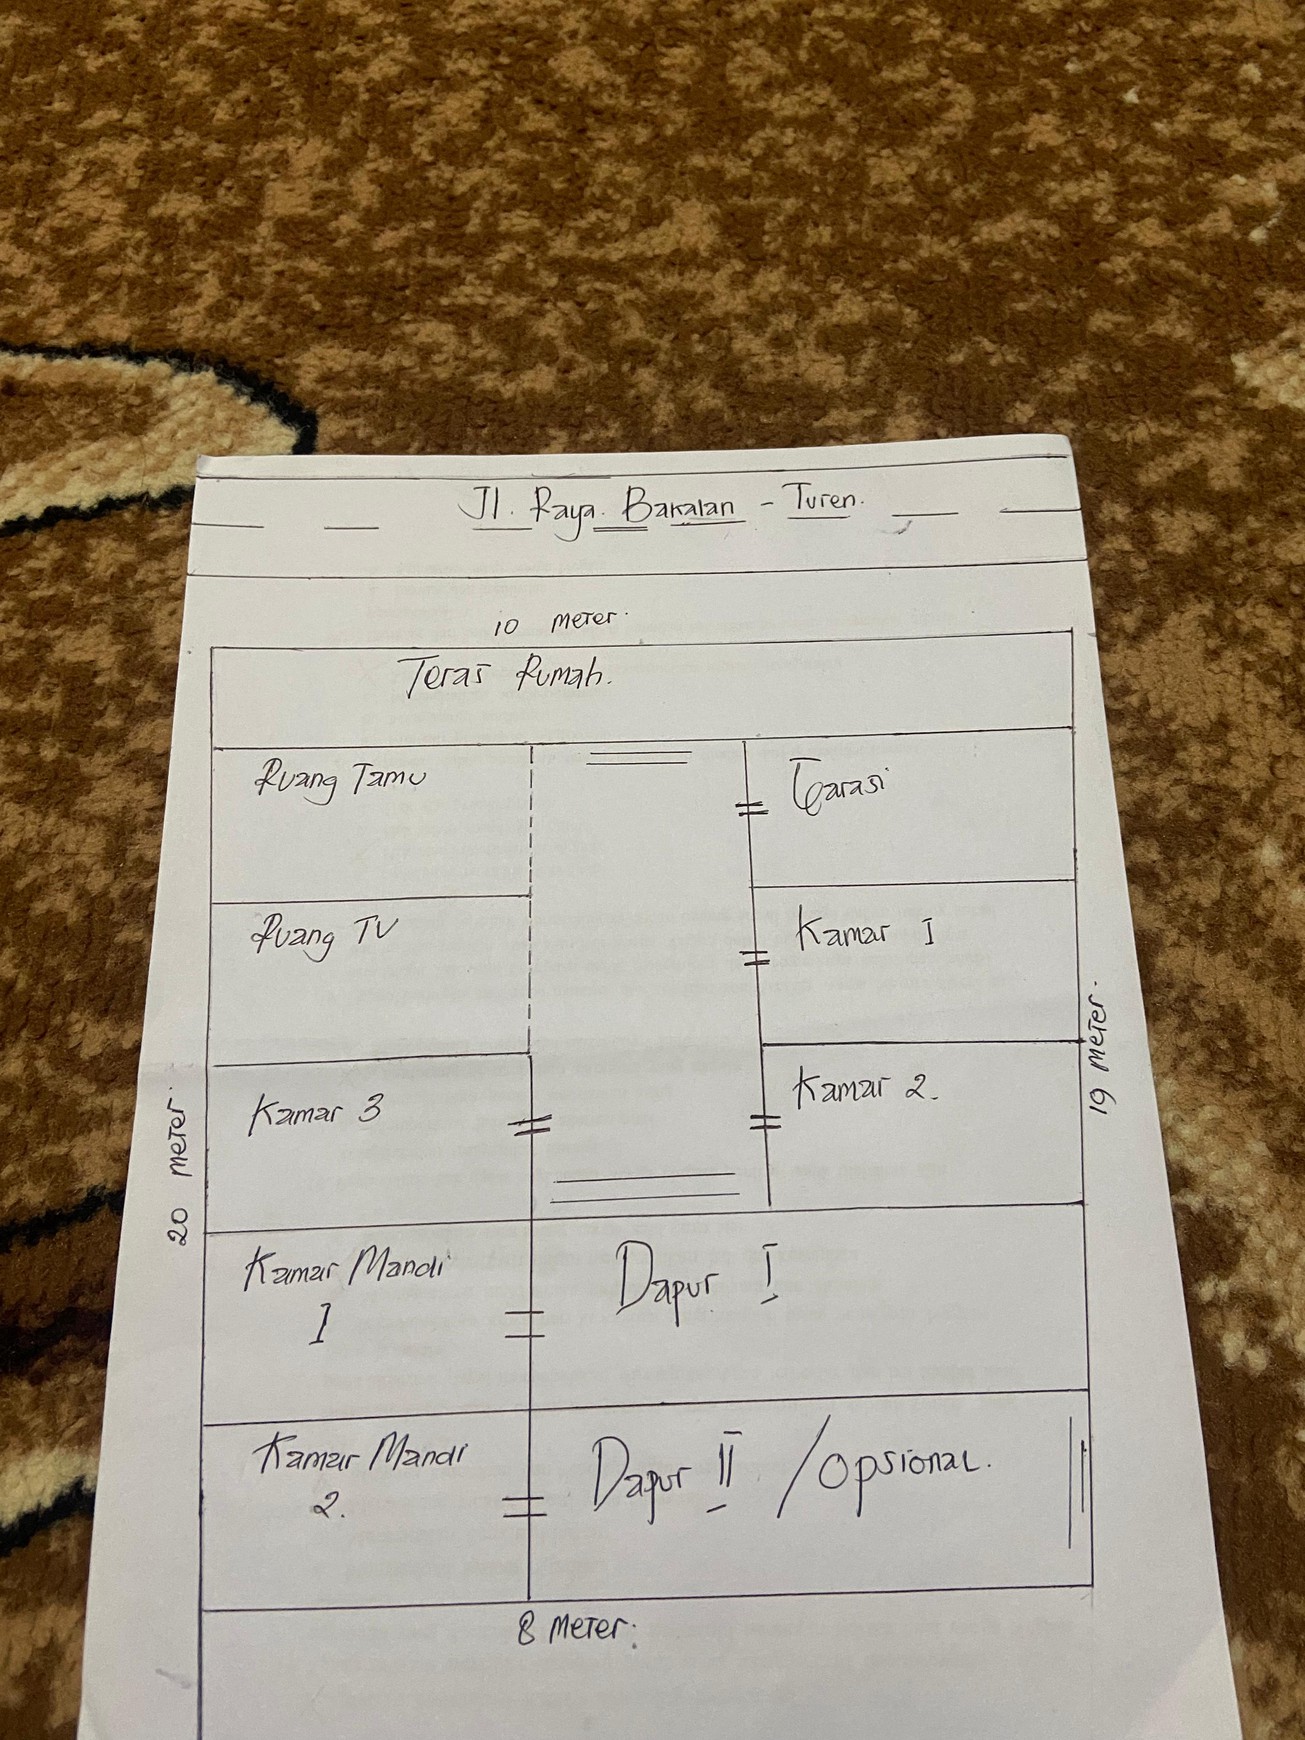 Jl. Raya. Bakalan - Turen.
10 meter.
Teras Rumah.
Ruang Tamu
Garasi
Ruang TV
Kamar I
Kamar 3
Kamar 2.
20 meter.
19 meter.
Kamar Mandi
I
Dapur I
Kamar Mandi
2.
Dapur II / opsional.
8 meter.